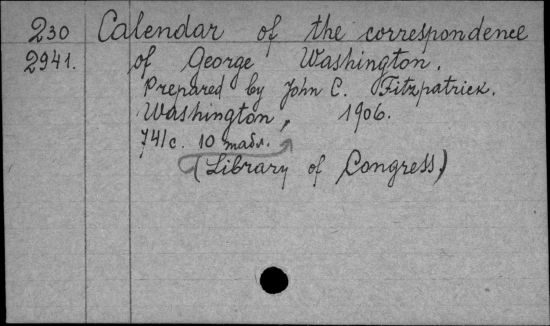 230 Calendar of the correspondence
2941. of George Washington.
Prepared by John C. Fitzpatrick.
Washington, 1906.
741c. 10 табл.
(Library of Congress)